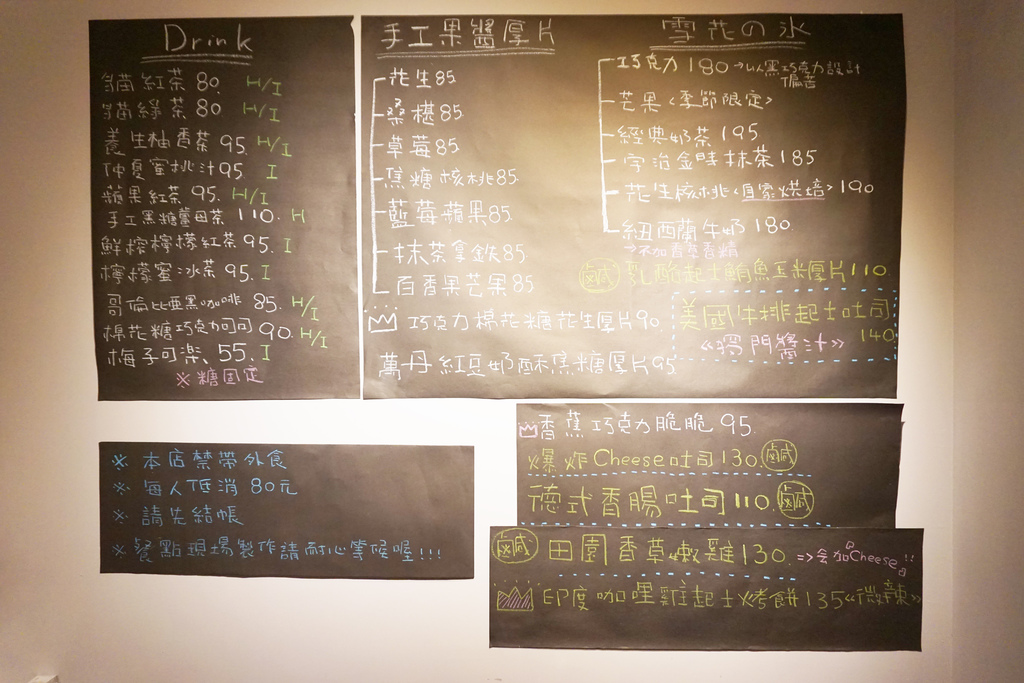 Drink
貓紅茶 80. H/I
貓綠茶 80 H/I
養生柚香茶 95. H/I
仲夏蜜桃汁 95 I
蘋果紅茶 95. H/I
手工黑糖薑母茶 110. H
鮮檸檸檬紅茶 95. I
檸檬蜜冰茶 95. I
哥倫比亞黑咖啡 85. H/I
棉花糖巧克力可可 90. H/I
梅子可樂、55. I
※糖固定
手工果醬厚片
花生85
桑椹85.
草莓85.
焦糖核桃85.
藍莓蘋果85.
抹茶拿鉄85.
百香果芒果85
巧克力棉花糖花生厚片90.
萬丹紅豆奶酥焦糖厚片95.
雪花の氷
巧克力180→以黑巧克力設計
偏苦
芒果<季節限定>
經典奶茶195
宇治金時抹茶185
花生核桃<自家烘焙>190
紐西蘭牛奶180.
→不加香草香精
鹹 乳酪起士鮪魚玉米厚片110
美國牛排起士吐司
140.
《獨門醬汁》
香蕉巧克力脆脆 95.
爆炸Cheese吐司130. 鹹
德式香腸吐司110. 鹹
鹹 田園香草嫩雞130. =>會加Cheese!!
印度咖哩雞起士烤餅135《微辣》
※ 本店禁帶外食
※ 每人低消80元
※ 請先結帳
※ 餐點現場製作請耐心等候喔!!!